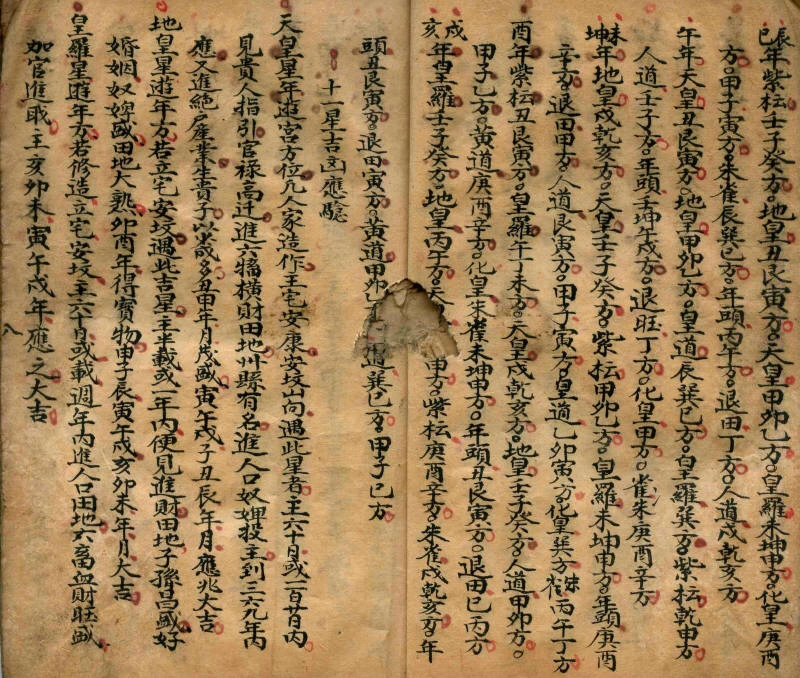 辰巳年紫枟壬子癸方地皇丑艮寅方天皇甲卯乙方皇羅未坤申方化皇庚酉
方甲子寅方朱雀辰巽巳方年頭丙午方退田丁方人道戌乾亥方
午年天皇丑艮寅方地皇甲卯乙方皇道辰巽巳方皇羅巽方紫枟乾申方
人道壬子方年頭壬坤午戌方退旺丁方化皇甲方雀朱庚酉辛方
未坤年地皇戌乾亥方天皇壬子癸方紫枟甲卯乙方皇羅未坤申方年頭庚酉
辛方退田甲方人道艮寅方甲子寅方皇道乙卯寅方化皇巽方朱雀丙午丁方
酉年紫枟丑艮寅方皇羅午丁未方天皇戌乾亥方地皇壬子癸方人道甲卯方
甲子乙方黄道庚酉辛方化皇朱雀未坤申方年頭丑艮寅方退田巳丙方
戌亥年皇羅壬子癸方地皇丙午方天申方紫枟庚酉辛方朱雀戌乾亥方年
頭丑艮寅方退田寅方黄道甲卯乙道巽巳方甲子巳方
十一星吉凶應驗
天皇星年遊宮方位凡人家造作王宅安康安坟山向遇此星者主六十日或一百廿日内
見貴人指引官禄高迁進六犒横財田地州縣有名進人口奴婢投主到三六九年内
應又進絶户産業生貴子以歳多丑申年月戌盛寅午戌子丑辰年月應兆大吉
地皇星遊年方若立宅安坟遇此吉星主半載或一年内便見進財田地子孫昌盛好
婚姻奴婢盛田地大熟卯酉年得寳物申子辰寅午戌亥卯未年月大吉
皇羅星遊年方若修造立宅安坟主六十日或載週年内進人口田地六畜血財旺盛
加官進职主亥卯未寅午戌年應之大吉
八